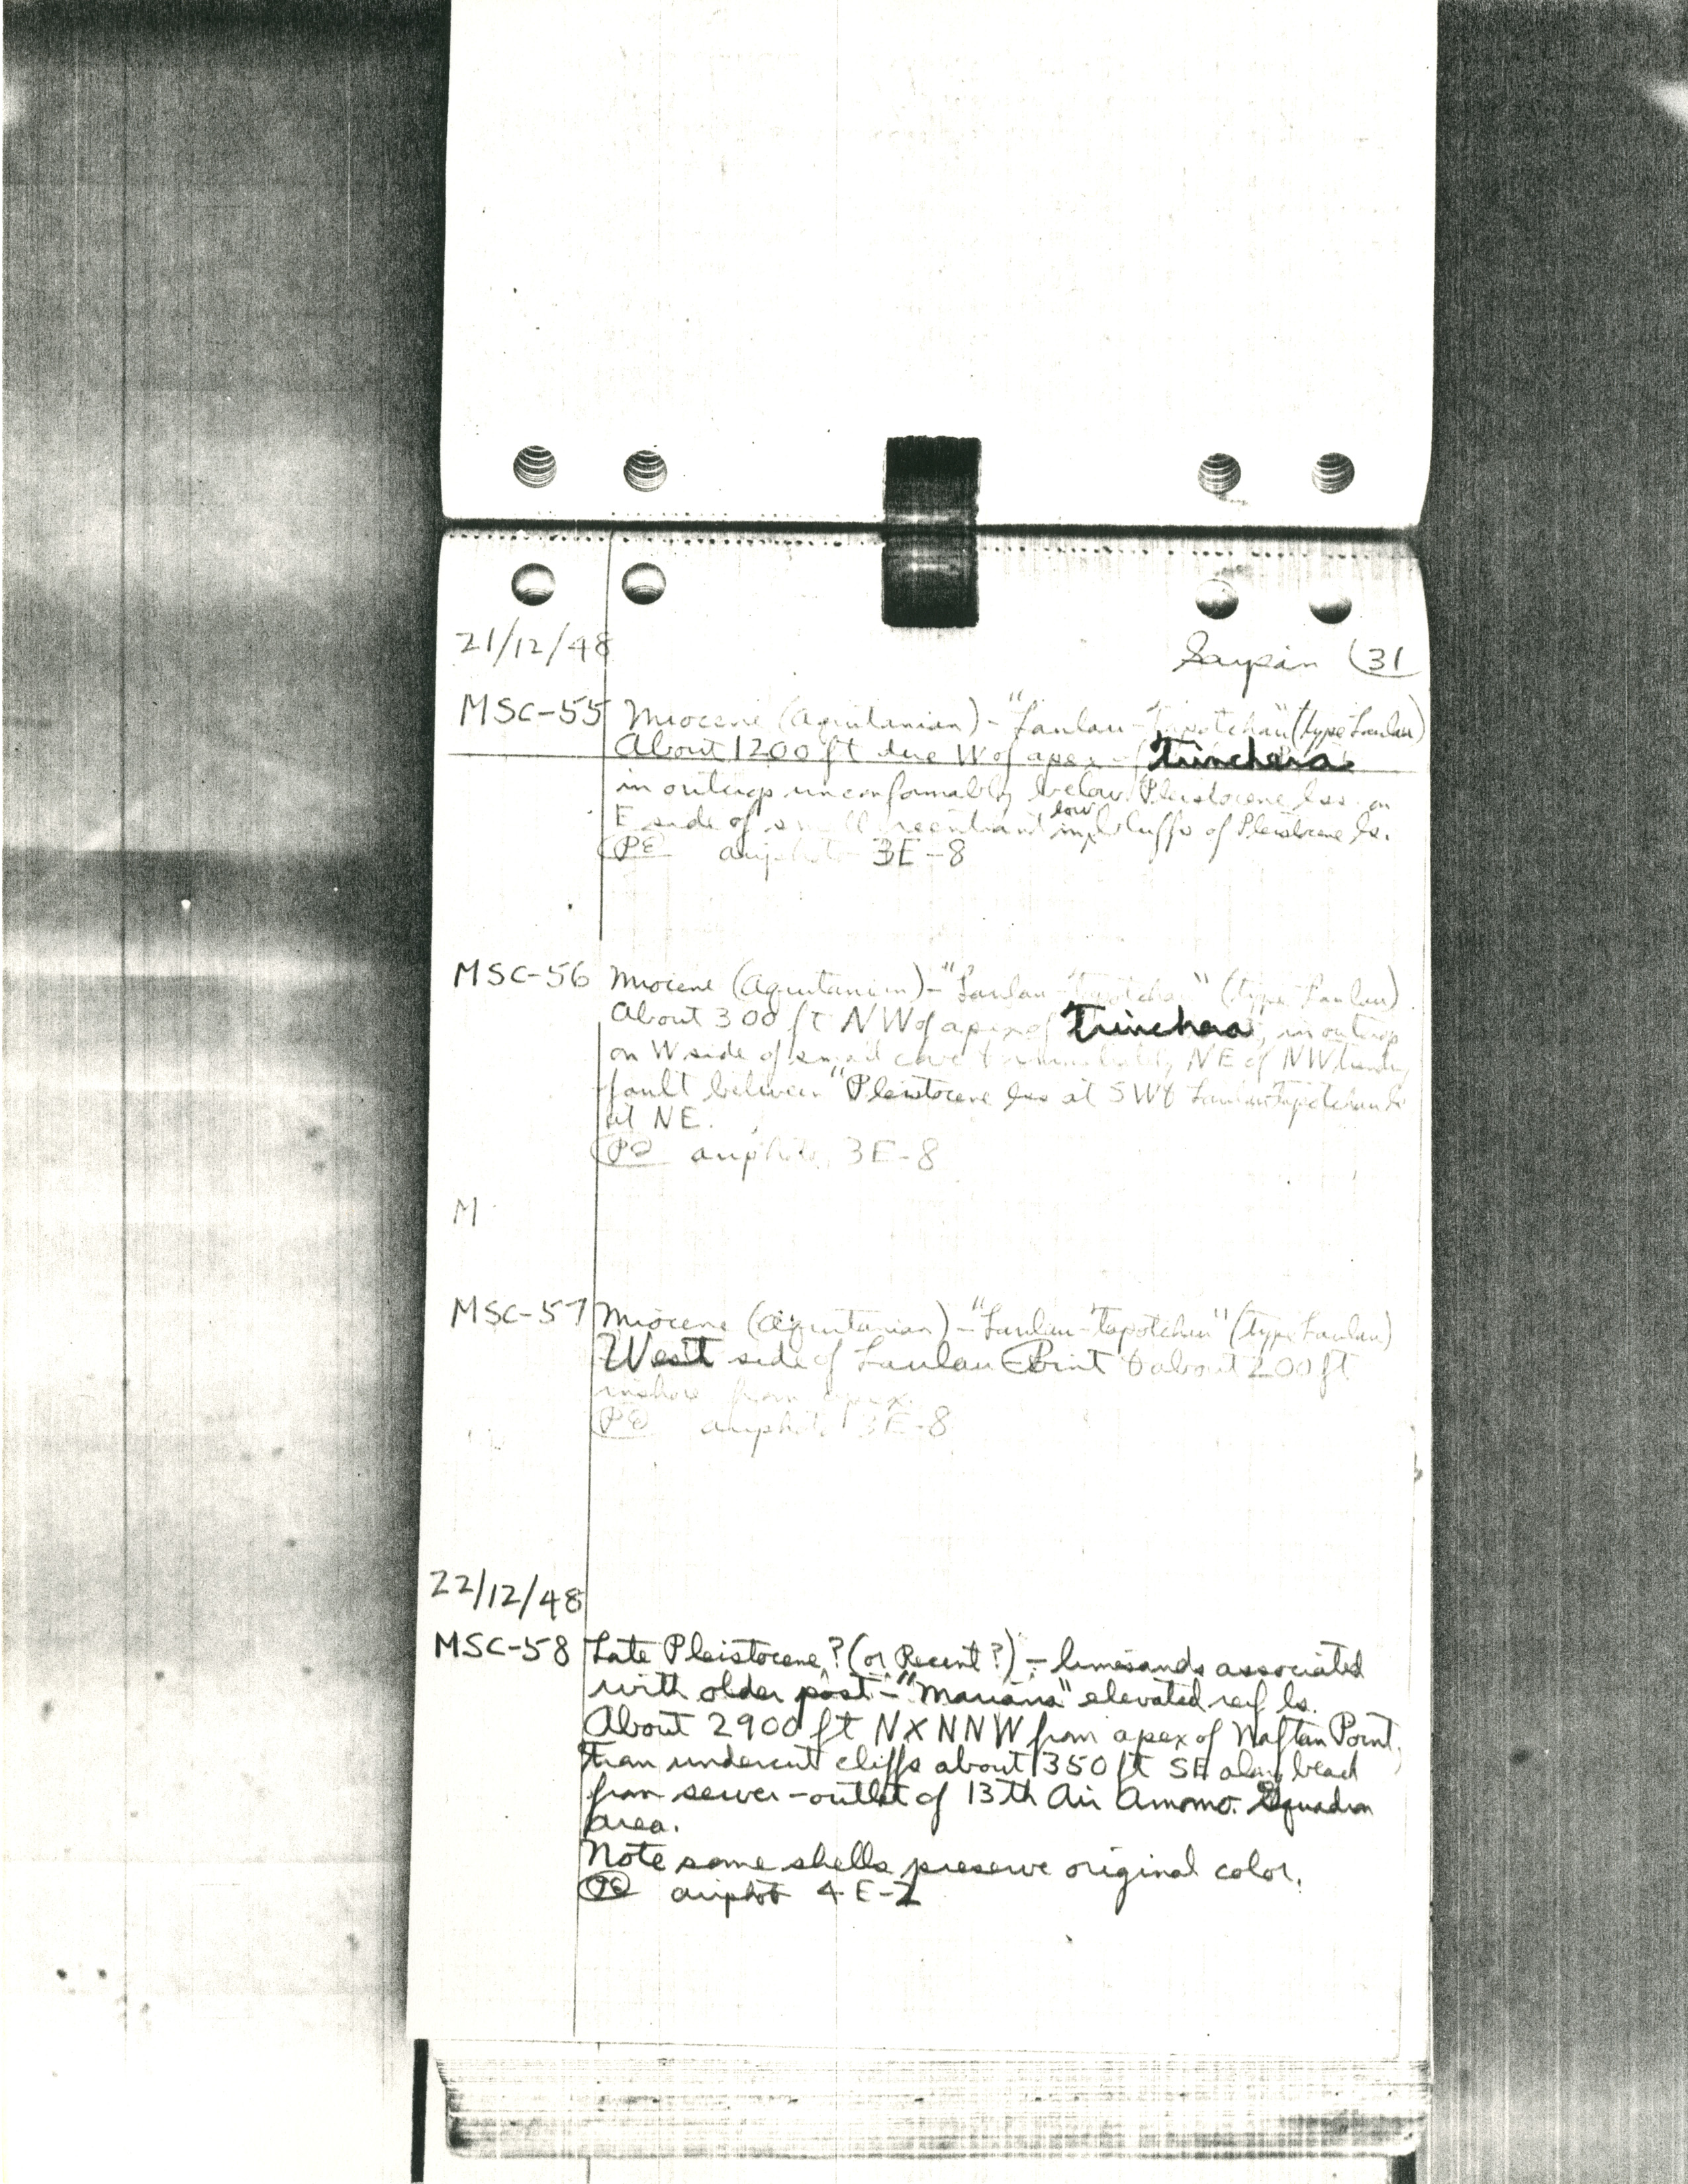 21/12/48
Saypan (31
MSC-55 Miocene (Aquitanian) - "Laulau-Tapotchau" (type Laulau)
About 1200 ft due W of apex of Trinchera
in outcrop unconformably below Pleistocene lss. on
E side of small reentrant in low bluffs of Pleistocene ls.
PE airphoto 3E-8
MSC-56 Miocene (Aquitanian) - "Laulau-Tapotchau" (type Laulau)
About 300 ft NW of apex of Trinchera, in outcrop
on W side of small cove immediately NE of NW trending
fault between "Pleistocene lss at SW & Laulau-Tapotchau ls
at NE.
PE airphoto 3E-8
M
MSC-57 Miocene (Aquitanian) - "Laulau-Tapotchau" (type Laulau)
West side of Laulau Point & about 200 ft
inshore from apex.
PE airphoto 3E-8
22/12/48
MSC-58 Late Pleistocene? (or Recent?) - limesands associated
with older post-"Mariana" elevated reef ls.
About 2900 ft N X NNW from apex of Naftan Point,
from undercut cliffs about 1350 ft SE along beach
from sewer-outlet of 13th Air Ammo. Squadron
area.
Note some shells preserve original color.
PE airphot 4 E-2